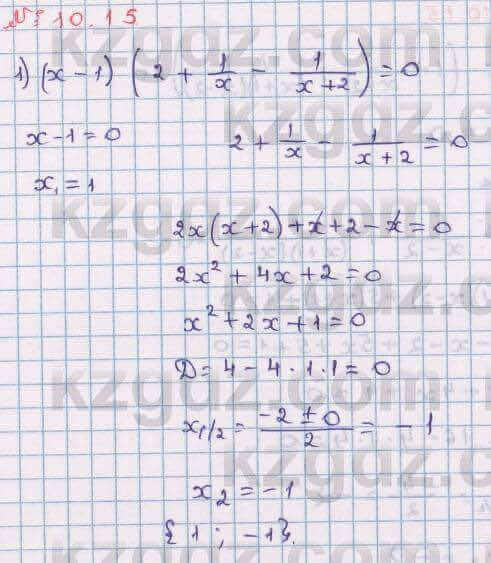 № 10.15
1) (x - 1) (2 + 1/x - 1/(x+2)) = 0
x - 1 = 0     2 + 1/x - 1/(x+2) = 0
x₁ = 1
2x(x+2) + x + 2 - x = 0
2x² + 4x + 2 = 0
x² + 2x + 1 = 0
D = 4 - 4 · 1 · 1 = 0
x₁/₂ = (-2 ± 0)/2 = -1
x₂ = -1
{ 1 ; -1}.